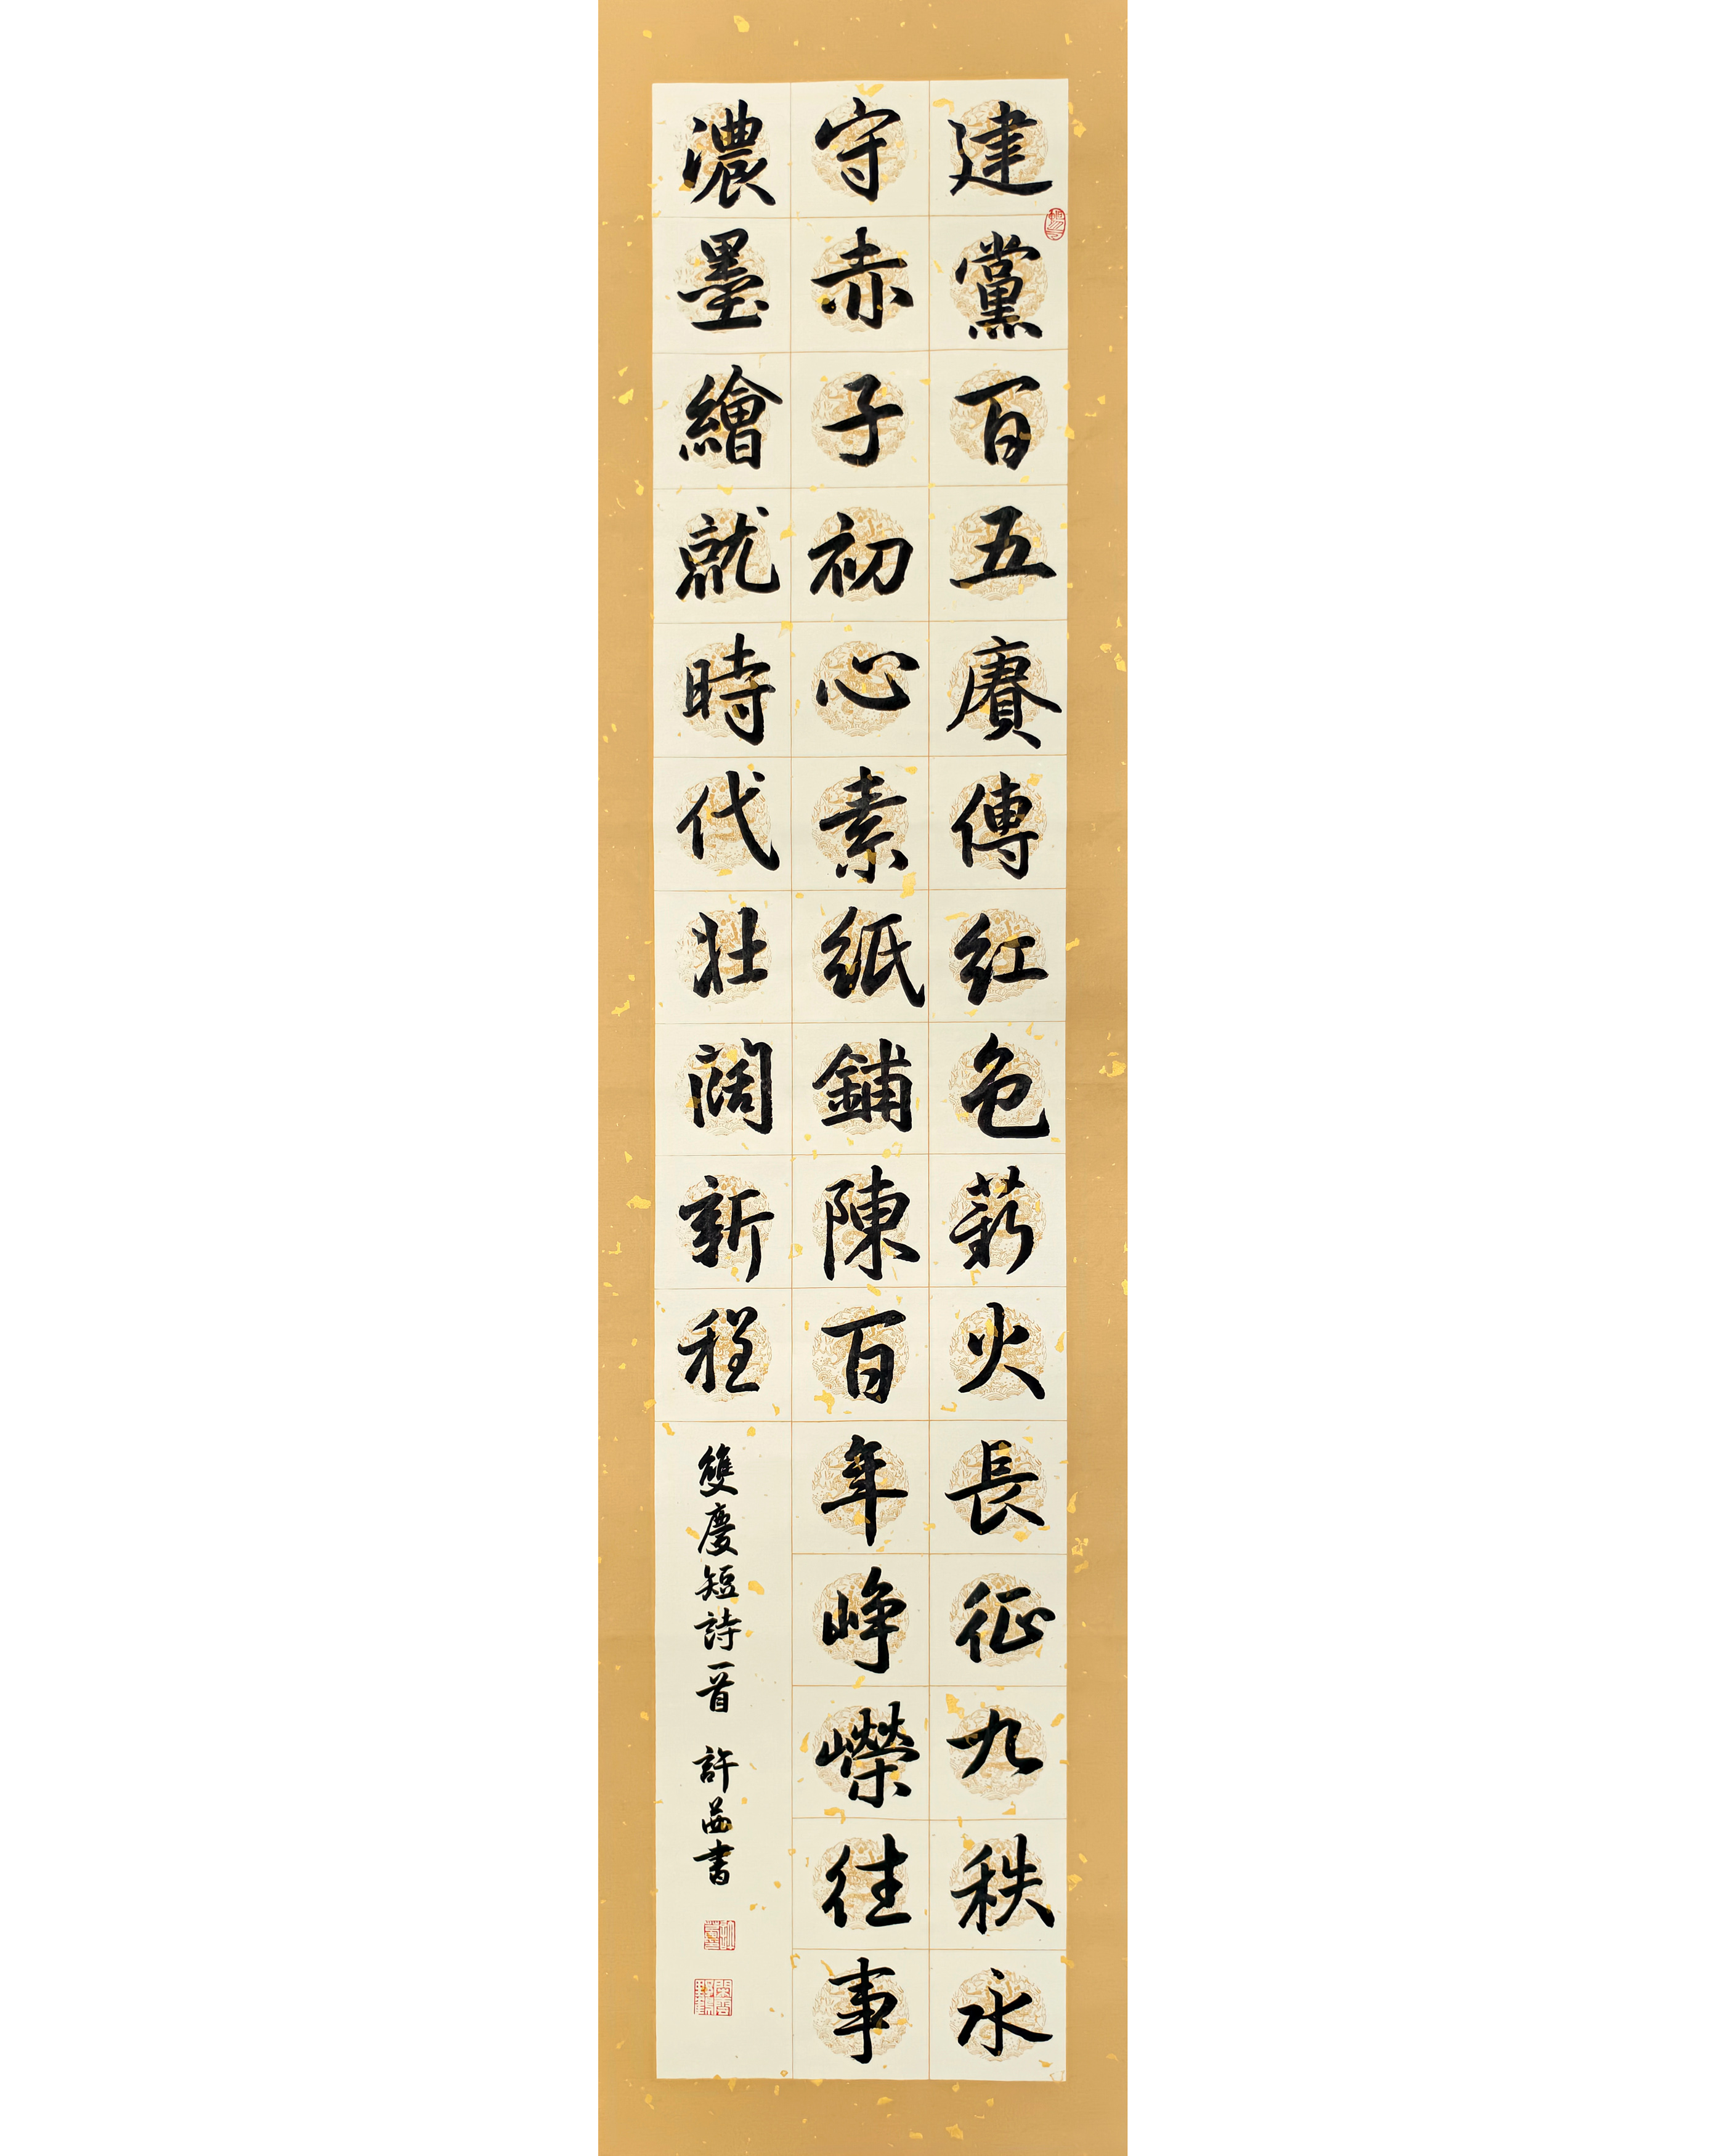 建黨百五賡傳紅色薪火長征九秩永
守赤子初心素紙鋪陳百年崢嶸往事
濃墨繪就時代壯闊新程
雙慶短詩一首 許益書